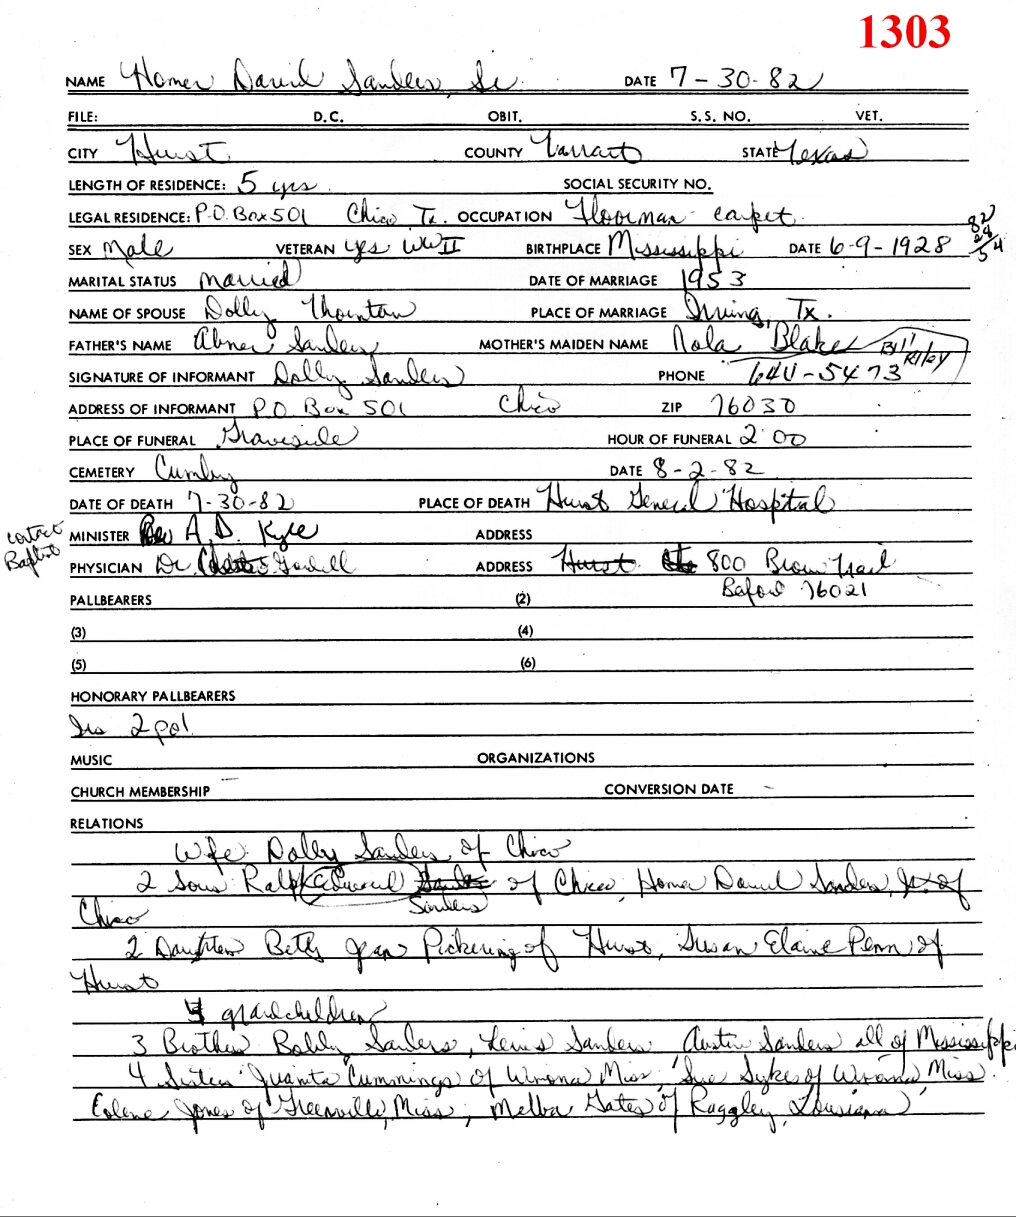 1303
NAME Homer David Sanders, Sr. DATE 7-30-82
FILE: D.C. OBIT. S.S. NO. VET.
CITY Hurst COUNTY Tarrant STATE Texas
LENGTH OF RESIDENCE: 5 yrs. SOCIAL SECURITY NO.
LEGAL RESIDENCE: P.O. Box 501 Chico Tx. OCCUPATION Floorman carpet
82
28
54
SEX Male VETERAN yes WWII BIRTHPLACE Mississippi DATE 6-9-1928
MARITAL STATUS married DATE OF MARRIAGE 1953
NAME OF SPOUSE Dolly Thornton PLACE OF MARRIAGE Irving, Tx.
FATHER'S NAME Abner Sanders MOTHER'S MAIDEN NAME Nola Blake Bill Riley
SIGNATURE OF INFORMANT Dolly Sanders PHONE 644-5473
ADDRESS OF INFORMANT P.O. Box 501 Chico ZIP 76030
PLACE OF FUNERAL Graveside HOUR OF FUNERAL 2:00
CEMETERY Cumby DATE 8-2-82
DATE OF DEATH 7-30-82 PLACE OF DEATH Hurst General Hospital
contact Baptist
MINISTER Rev A. D. Kyle ADDRESS
PHYSICIAN Dr. ADDRESS Hurst 800 Brown Trail
Beford 76021
PALLBEARERS (2)
(3) (4)
(5) (6)
HONORARY PALLBEARERS
Ins 2 pol
MUSIC ORGANIZATIONS
CHURCH MEMBERSHIP CONVERSION DATE
RELATIONS
Wife Dolly Sanders of Chico
2 Sons Ralph Edward Sanders of Chico, Homer David Sanders, Jr. of
Sanders
Chico
2 Daughters Betty Jean Pickering of Hurst, Susan Elaine Penn of
Hurst
grandchildren
3 Brothers Bobby Sanders, Lewis Sanders Austin Sanders all of Mississippi
4 Sisters Juanita Cummings of Winona Miss, Sue Sykes of Winona Miss.
Earlene Jones of Greenville, Miss, Melba Gates of Raggley, Louisiana